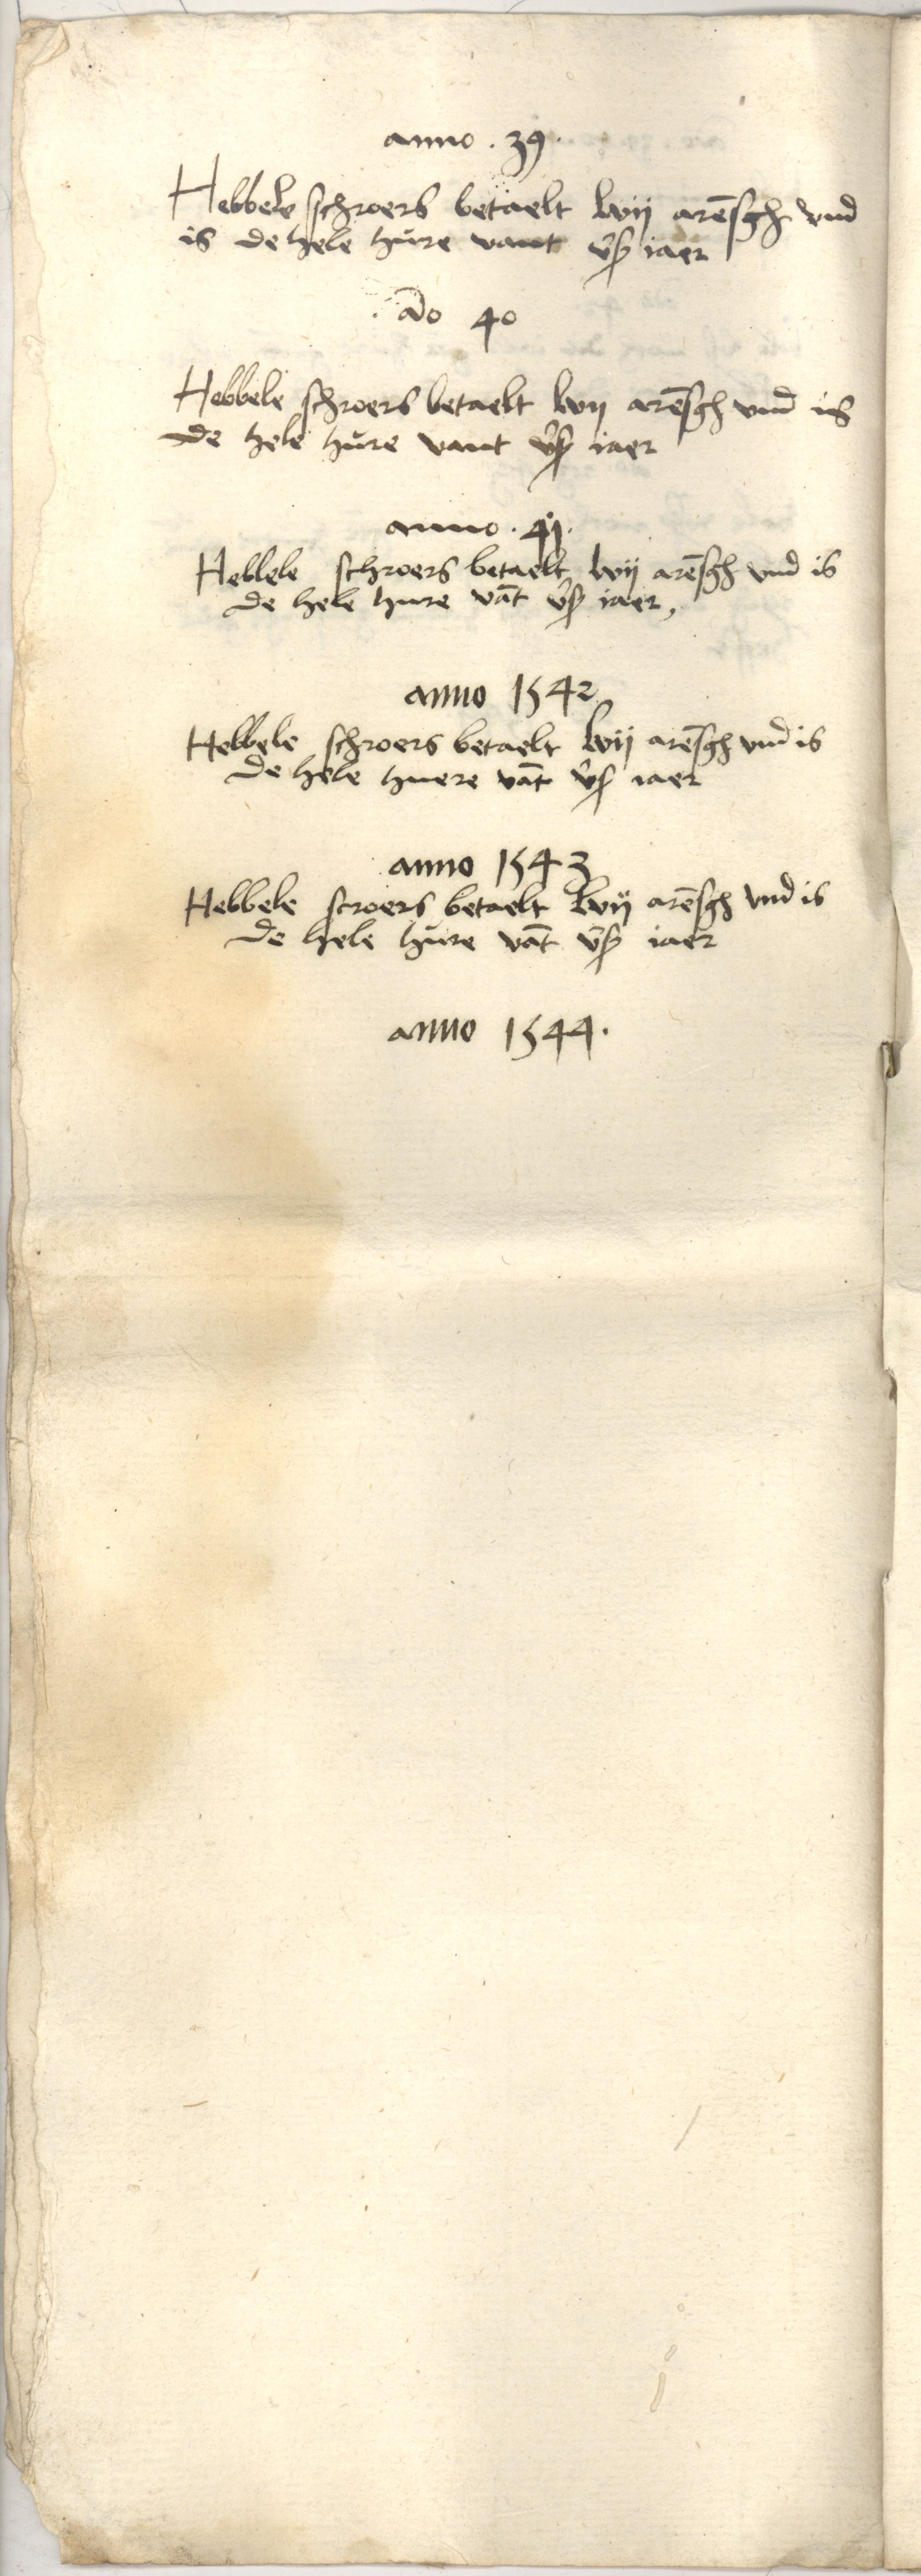 anno . 39 .
Hebbele schroers betaelt lvij arēsgh vnd
is de hele hůre vant v̄ß iaer
. ādo 40
Hebbele schroers betaelt lvij arēsgh vnd is
de hele hůre vant v̄ß iaer
anno . 41 .
Hebbele schroers betaelt lvij arēsgh vnd is
de hele hure vāt v̄ß iaer,
anno 1542
Hebbele schroers betaelt lvij arēsgh vnd is
de hele huere vāt v̄ß iaer
anno 1543
Hebbele scroers betaelt lvij arēsgh vnd is
de hele hůre vāt v̄ß iaer
anno 1544 .